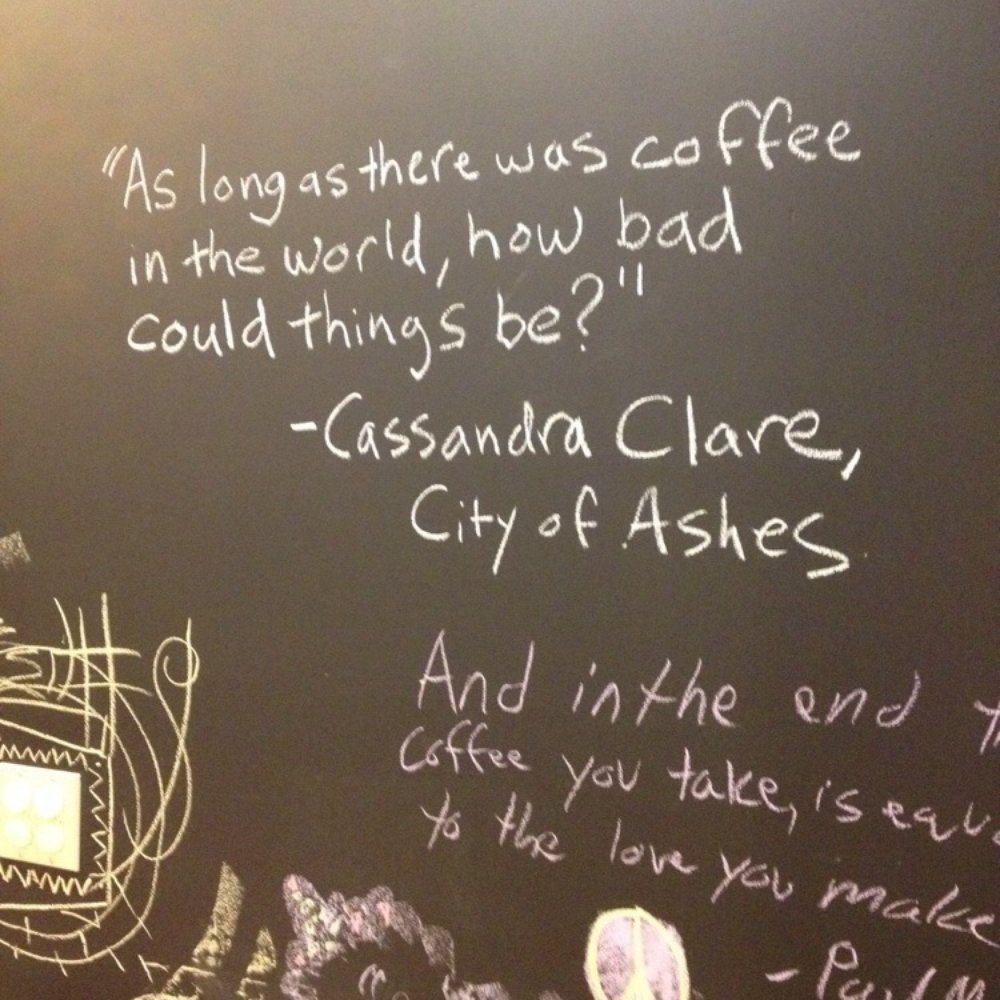 "As long as there was coffee
in the world, how bad
could things be?"
-Cassandra Clare,
City of Ashes
And in the end
Coffee you take, is
to the love you make
- Paul